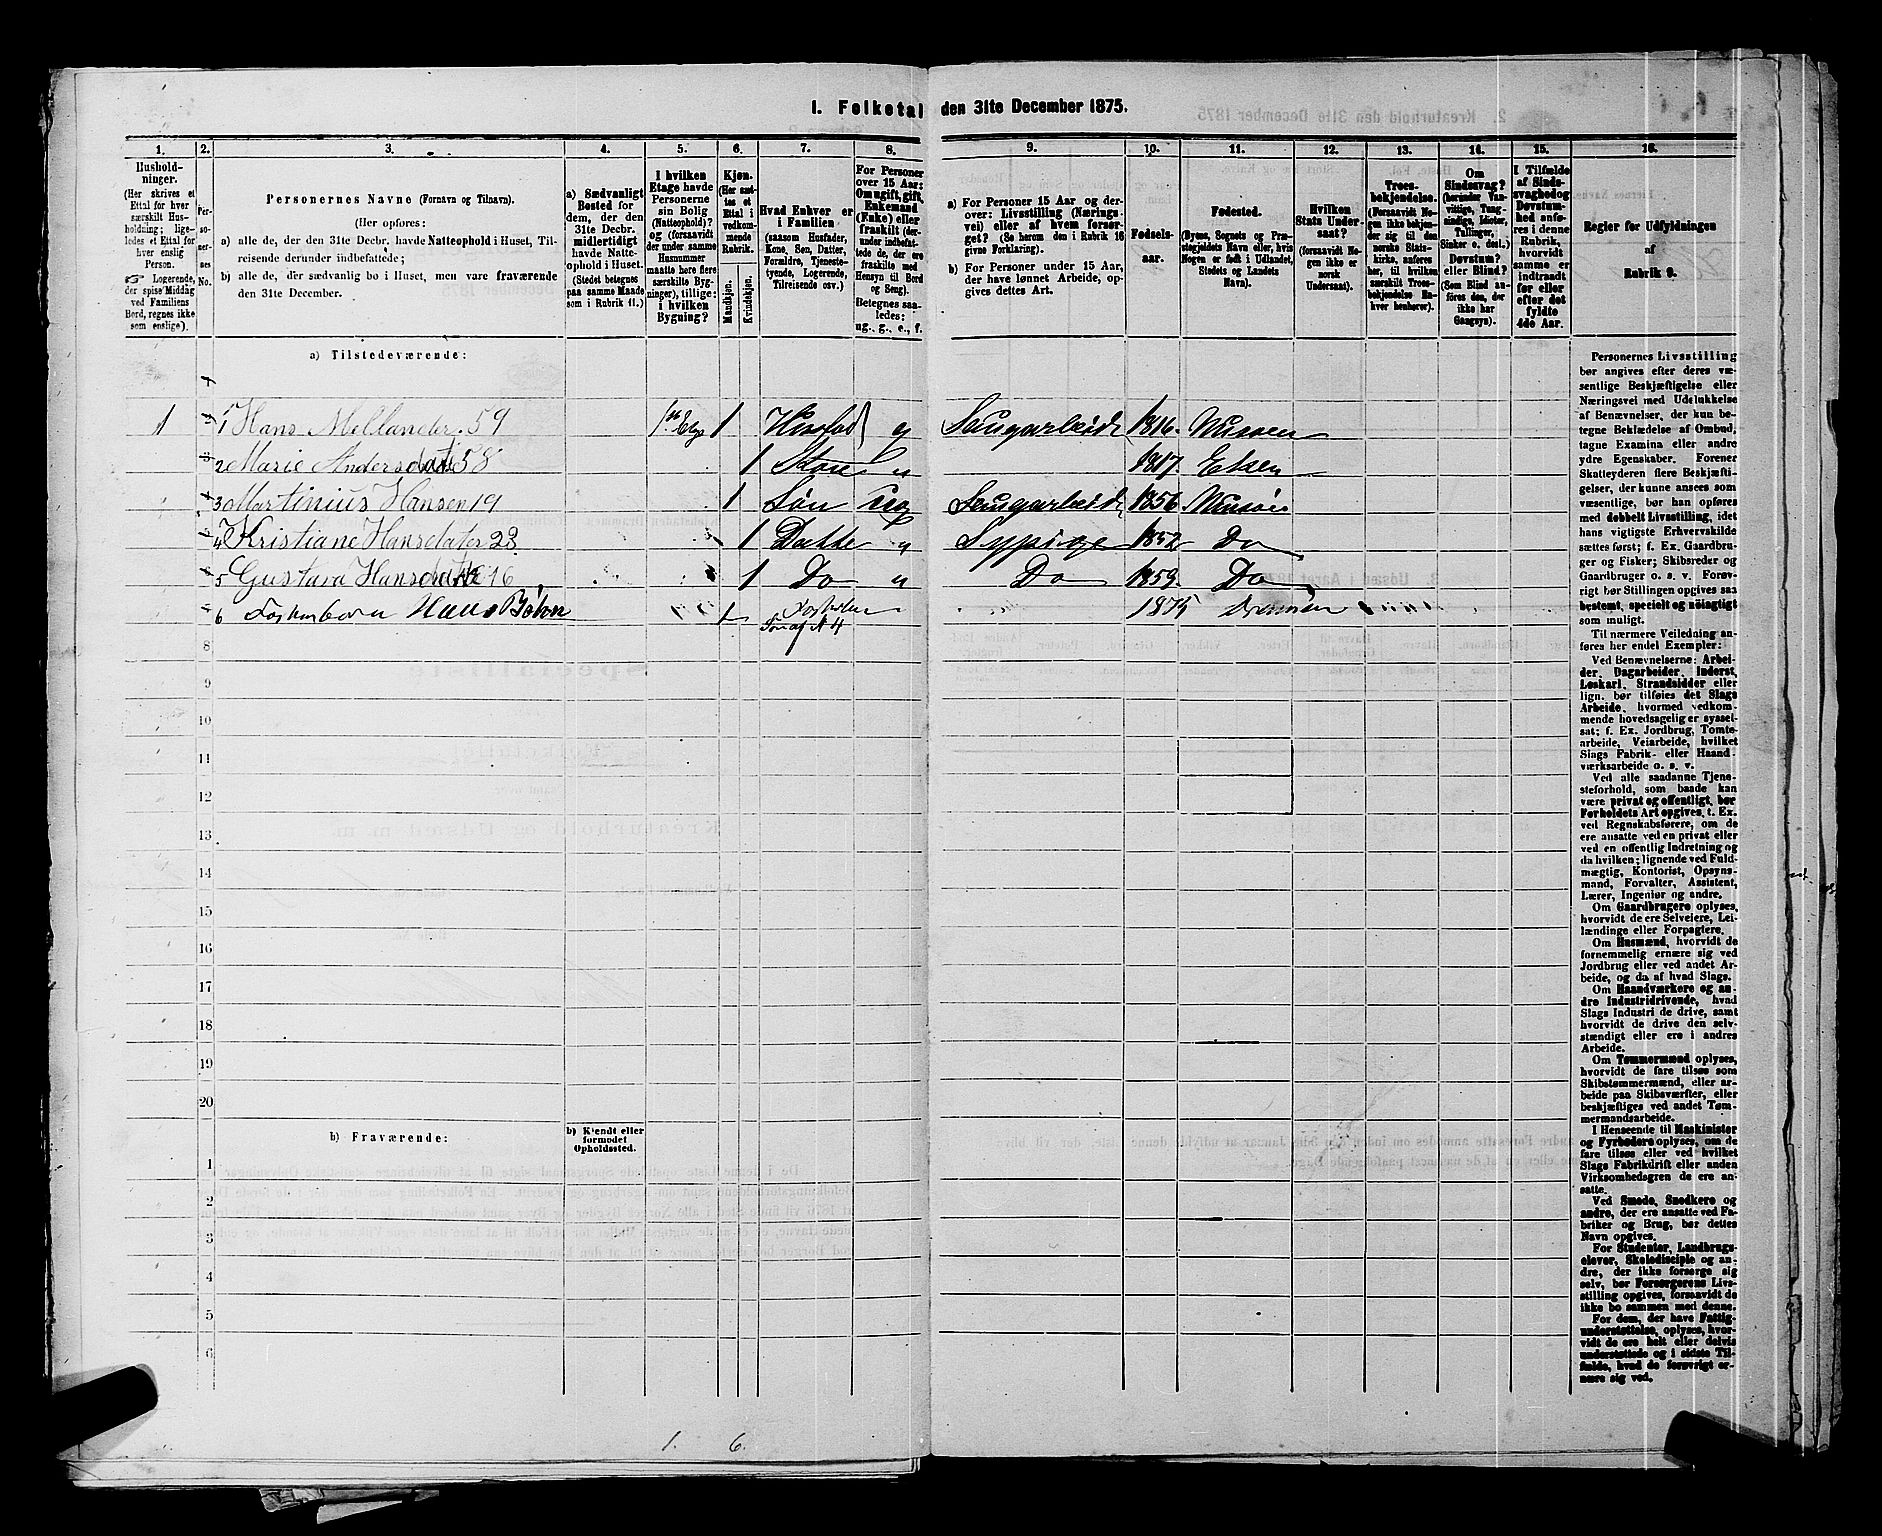 I. Folketal den 31te December 1875.
1. 2. 3. 4. 5. 6. 7. 8. 9. 10. 11. 12. 13. 14. 15. 16.
Husholdninger.
(Her skrives et
Ettal for hver
særskilt Husholdning; ligeledes et Ettal for
hver enslig
Person.
Logerende,
der spise Middag
ved Familiens
Bord, regnes ikke
som enslige).
Personernes No.
Personernes Navne (Fornavn og Tilnavn).
(Her opføres:
a) alle de, der den 31te Decbr. havde Natteophold i Huset, Tilreisende derunder indbefattede;
b) alle de, der sædvanlig bo i Huset, men vare fraværende
den 31te December.
a) Sædvanligt
Bosted for
dem, der den
31te Decbr.
midlertidigt
havde Natteophold i Huset.
(Stedet betegnes
paa samme Maade
som i Rubrik 11.)
I hvilken
Etage havde
Personerne
sin Bolig
(Natteophold)?
og (forsaavidt
der under samme
Husnummer
maatte høre flere
særskilte Bygninger), tillige:
i hvilken
Bygning?
Kjøn.
(Her sættes et
Ettal i
vedkommende
Rubrik.
Mandkjøn.
Kvindekjøn.
Hvad Enhver er
i Familien
(saasom Husfader,
Kone, Søn, Datter,
Forældre, Tjenestetyende, Logerende,
Tilreisende osv.)
For Personer
over 15 Aar:
Om ugift, gift,
Enkemand
(Enke) eller
fraskilt (derunder indbefattede de, der ere
fraskilte med
Hensyn til Bord
og Seng).
Betegnes saaledes:
ug., g., e., f.
a) For Personer 15 Aar og derover: Livsstilling (Næringsvei) eller af hvem forsørget? (Se herom den i Rubrik 16
givne Forklaring).
b) For Personer under 15 Aar,
der have lønnet Arbeide, opgives dettes Art.
Fødselsaar.
Fødested.
(Byens, Sognets og Præstegjeldets Navn eller, hvis
Nogen er født i Udlandet,
Stedets og Landets
Navn).
Hvilken
Stats Undersaat?
(forsaavidt Nogen ikke er
norsk
Undersaat).
Troesbekjendelse.
(Forsaavidt Nogen ikke bekjender sig til den
norske Statskirke, anføres
her, til hvilken
særskilt Troesbekjendelse Enhver henhører).
Om
Sindssvag?
(herunder Vanvittige, Tungsindige, Idioter,
Tullinger,
Sinker o. desl.)
Døvstum?
eller Blind?
(Som Blind anføres den, der
ikke har
Gangsyn).
I Tilfælde
af Sindssvaghed og
Døvstumhed anføres i denne
Rubrik,
hvorvidt
samme er
indtraadt
før eller
efter det
fyldte
4de Aar.
Regler for Udfyldningen
af
Rubrik 9.
a) Tilstedeværende:
1 1 Hans Mellander 59 1 1816.
2 Marie Andersdatter 58 1 1817.
3 Martinius Hansen 19 1 Søn ug 1856
4 Kristiane Hansdater 23 1 Datter 1852 Do
5 Gustava Hansdatter 16 1 Do Do 1859. Do
6 1 Søn af N 4 1875
8
9
10
11
12
13
14
15
16
17
18
19
20
b) Fraværende: b) Kjendt eller
formodet
Opholdssted.
1
2
3
4
5
6
1. 6.
Personernes Livsstilling
bør angives efter deres væsentlige Beskjæftigelse eller
Næringsvei med Udelukkelse
af Benævnelser, der kun betegne Beklædelse af Ombud,
tagne Examina eller andre
ydre Egenskaber. Forener
Skatteyderen flere Beskjæftigelser, der kunne ansees som
væsentlige, bør han opføres
med dobbelt Livsstilling, idet
hans vigtigste Erhvervskilde
sættes først; f. Ex. Gaardbruger og Fisker; Skibsreder og
Gaardbruger o. s. v. Forøvrigt bør Stillingen opgives saa
bestemt, specielt og nøiagtigt
som muligt.
Til nærmere Veiledning anføres her endel Exempler:
Ved Benævnelserne: Arbeider, Dagarbeider, Inderst,
Løskarl, Strandsidder eller
lign. bør tilføies det Slags
Arbeide, hvormed vedkommende hovedsagelig er sysselsat; f. Ex. Jordbrug, Tomtearbeide, Veiarbeide, hvilket
Slags Fabrik- eller Haandværksarbeide o. s. v.
Ved alle saadanne Tjenesteforhold, som baade kan
være privat og offentligt, bør
Forholdets Art opgives, t. Ex.
ved Regnskabsførere, om de
ere ansatte ved en privat eller
ved en offentlig Indretning og
da hvilken; lignende ved Fuldmægtig, Kontorist, Opsynsmand, Forvalter, Assistent,
Lærer, Ingeniør og andre.
Om Gaardbrugere oplyses,
hvorvidt de ere Selveiere, Leilændinge eller Forpagtere.
Om Husmænd, hvorvidt de
fornemmelig ernære sig ved
Jordbrug eller ved andet Arbeide, og da af hvad Slags.
Om Haandværkere og andre Industridrivende, hvad
Slags Industri de drive, samt
hvorvidt de drive den selvstændigt eller ere i andres
Arbeide.
Om Tømmermænd oplyses,
hvorvidt de fare tilsøs som
Skibstømmermænd, eller arbeide paa Skibsværfter, eller
beskjæftiges ved andet Tømmermandsarbeide.
I Henseende til Maskinister
og Fyrbødere oplyses, om de
fare tilsøs eller ved hvilket
Slags Fabrikdrift eller anden
Virksomhedsgren de ere ansatte.
Ved Smede, Snedkere og
andre, der ere ansatte ved Fabriker og Brug, bør dettes
Navn opgives.
For Studenter, Landbrugselever, Skoledisciple og andre, der ikke forsørge sig
selv, bør Forsørgerens Livsstilling opgives, forsaavidt de
ikke bo sammen med denne.
For dem, der have Fattigunderstøttelse, oplyses, hvorvidt de ere helt eller delvis
understøttede og i sidste Tilfælde, hvad de forøvrigt ernære sig ved.